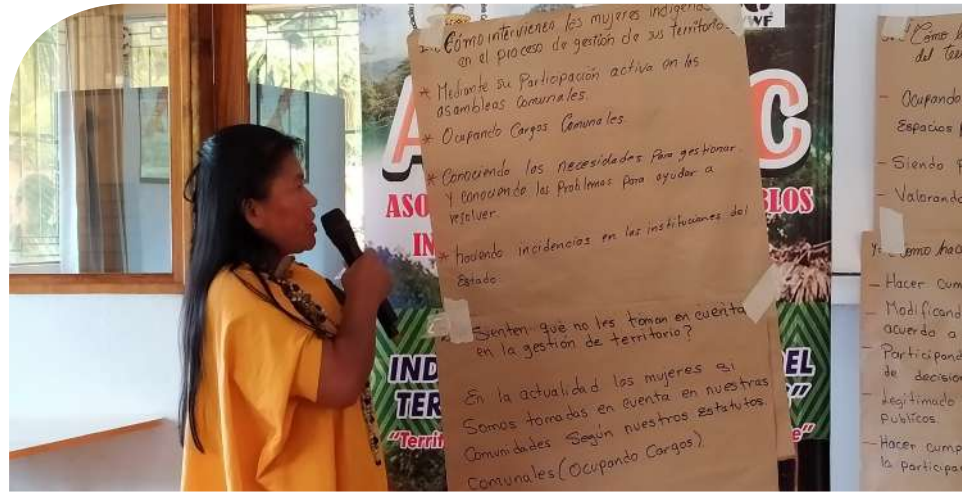 2.. Cómo intervienen las mujeres indígenas
en el proceso de gestión de sus territorio
* Mediante su Participación activa en las
asambleas comunales.
* Ocupando Cargos Comunales
* Conociendo las necesidades Para gestionar
y conociendo las Problemas Para ayudar a
resolver.
* haciendo incidencias en las instituciones del
Estado.
Sienten que no les toman en cuenta
en la gestión de territorio?
En la actualidad las mujeres si
Somos tomadas en cuenta en nuestras
Comunidades Según nuestros estatutos
Comunales (Ocupando Cargos).
Como
del
- Ocupando
Espacios
- Siendo
- Valorando
Como
- Hacer
- Modificand
acuerdo a
- Participand
de decision
- Legitimado
Publicos.
- Hacer
la
WF
A
C
ASO
BLOS
IN
IND
DEL
TER
"Territ